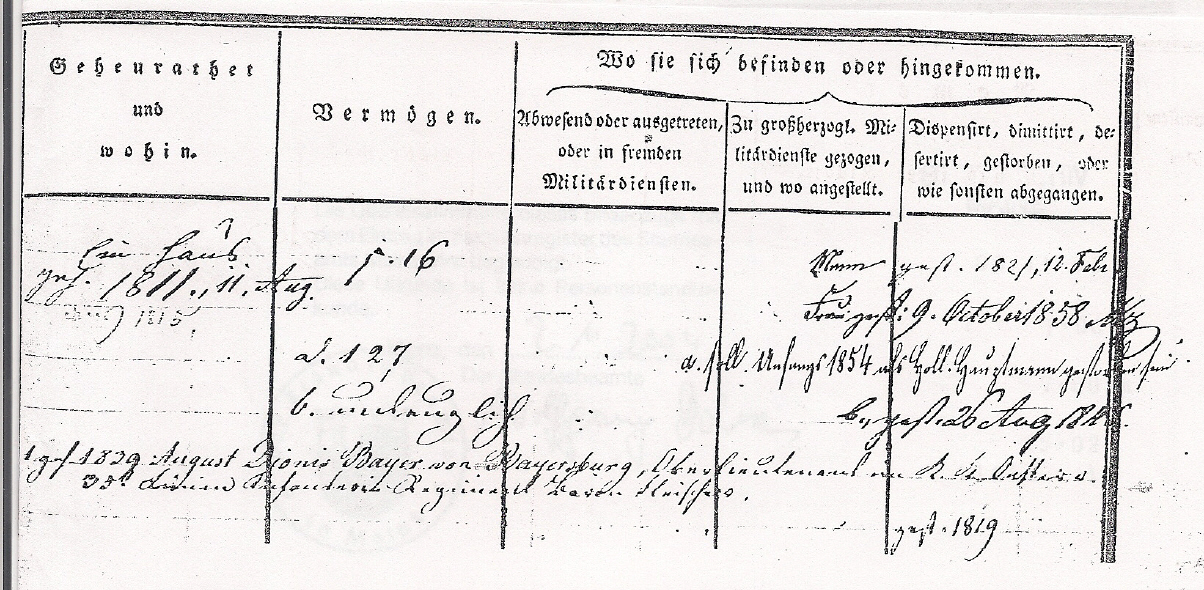 Geheurathet
und
wohin.
Vermögen.
Wo sie sich befinden oder hingekommen.
Abwesend oder ausgetreten,
oder in fremden
Militärdiensten.
Zu großherzogl. Mi-
litärdienste gezogen,
und wo angestellt.
Dispensirt, dimittirt, de-
sertirt, gestorben, oder
wie sonsten abgegangen.
Ein Haus
geh. 1811., 11. Aug.
1815.
16
Mann gest. 1821, 12. Febr
Frau gest: 9. October 1858
a. 127
a. soll Anfangs 1854 als Holl. Hauptmann gestorben sein
b. untauglich
b. gest. 26 Aug
1839 August Dionis Bayer von Bayersburg, Oberlieutenant im K. K. Oesterr.
35t Linien Infanterie Regiment Baron Fleischer.
gest. 1819